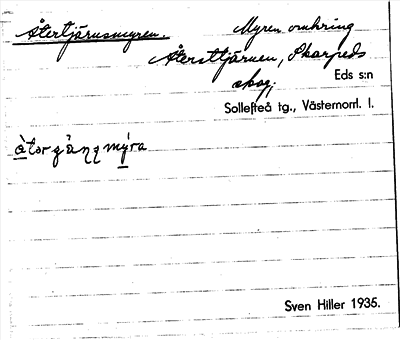 Återtjärnsmyren. Myren omkring
Återtjärnen, Skarpeds
skog;
Eds s:n
Sollefteå tg., Västernorrl. l.
Sven Hiller 1935.